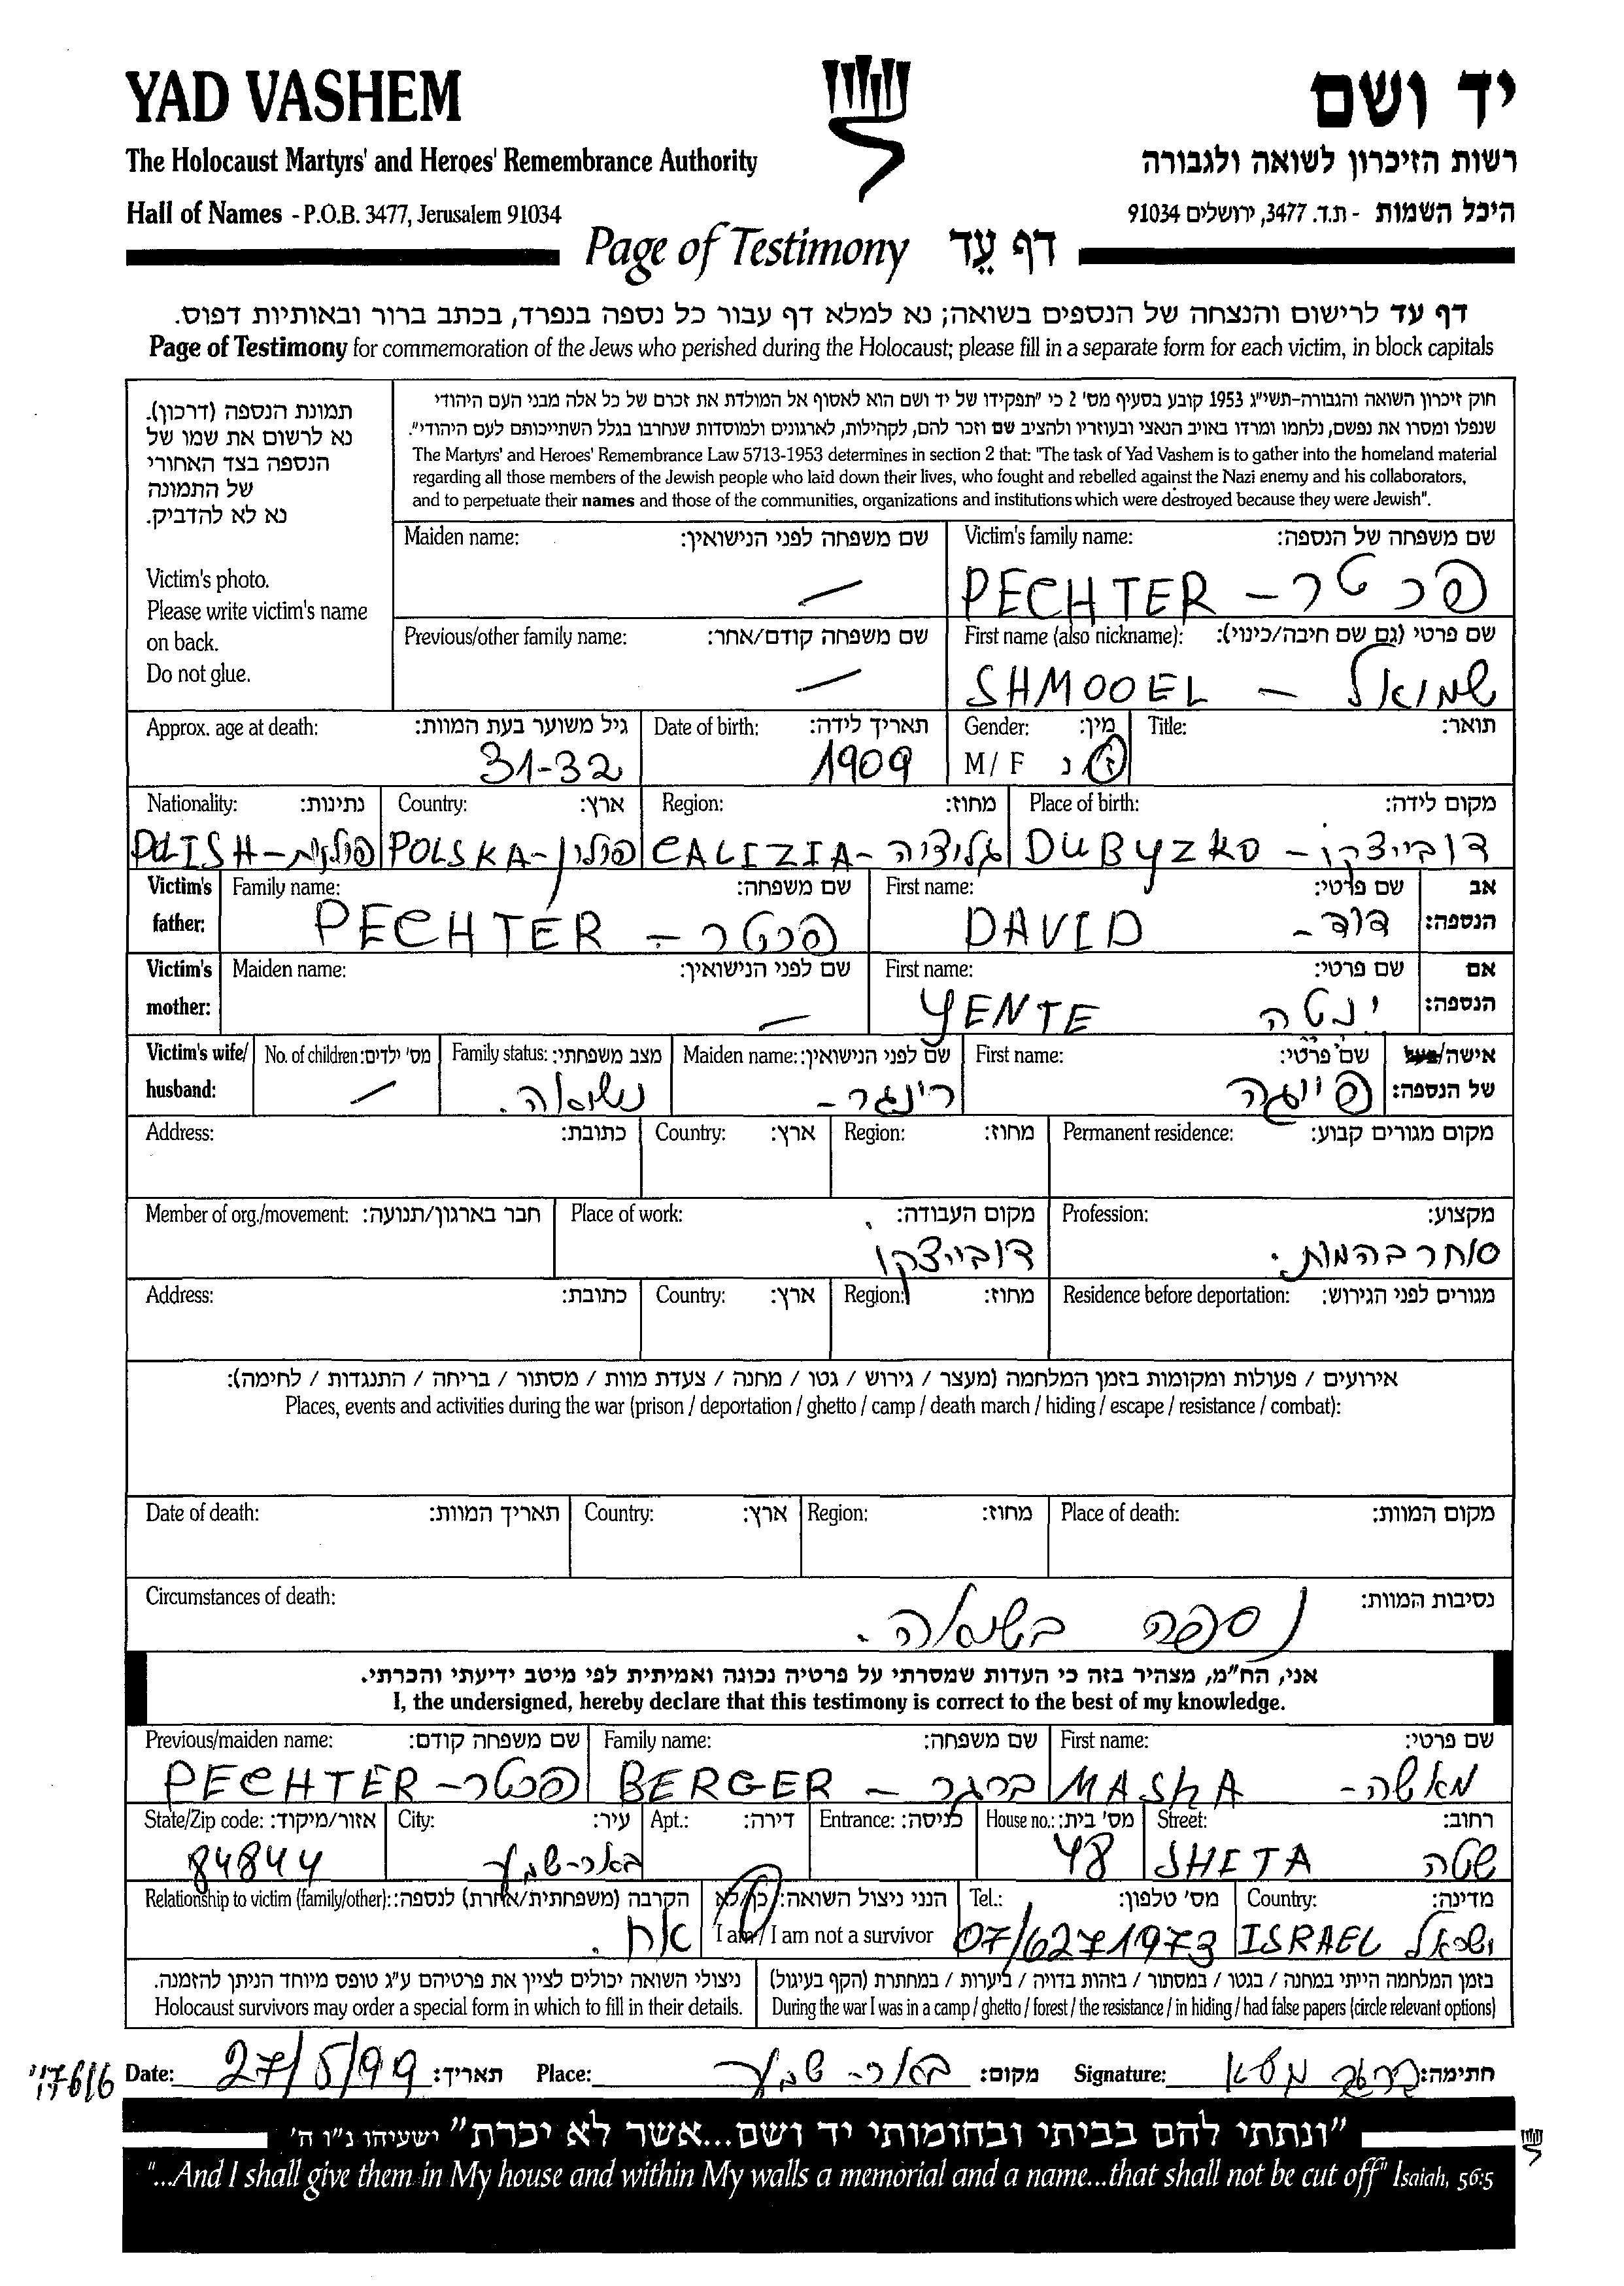 YAD VASHEM
יד ושם
The Holocaust Martyrs' and Heroes' Remembrance Authority
רשות הזיכרון לשואה ולגבורה
Hall of Names - P.O.B. 3477, Jerusalem 91034
היכל השמות - ת.ד. 3477, ירושלים 91034
Page of Testimony דף עֵד
דף עד לרישום והנצחה של הנספים בשואה; נא למלא דף עבור כל נספה בנפרד, בכתב ברור ובאותיות דפוס.
Page of Testimony for commemoration of the Jews who perished during the Holocaust; please fill in a separate form for each victim, in block capitals
תמונת הנספה (דרכון).
נא לרשום את שמו של
הנספה בצד האחורי
של התמונה
נא לא להדביק.
Victim's photo.
Please write victim's name
on back.
Do not glue.
חוק זיכרון השואה והגבורה-תשי"ג 1953 קובע בסעיף מס' 2 כי "תפקידו של יד ושם הוא לאסוף אל המולדת את זכרם של כל אלה מבני העם היהודי
שנפלו ומסרו את נפשם, נלחמו ומרדו באויב הנאצי ובעוזריו ולהציב שם וזכר להם, לקהילות, לארגונים ולמוסדות שנחרבו בגלל השתייכותם לעם היהודי".
The Martyrs' and Heroes' Remembrance Law 5713-1953 determines in section 2 that: "The task of Yad Vashem is to gather into the homeland material
regarding all those members of the Jewish people who laid down their lives, who fought and rebelled against the Nazi enemy and his collaborators,
and to perpetuate their names and those of the communities, organizations and institutions which were destroyed because they were Jewish".
Maiden name: שם משפחה לפני הנישואין: Victim's family name: שם משפחה של הנספה:
— PECHTER - פכטר
Previous/other family name: שם משפחה קודם/אחר: First name (also nickname): שם פרטי (גם שם חיבה/כינוי):
— SHMOOEL - שמואל
Approx. age at death: גיל משוער בעת המוות: Date of birth: תאריך לידה: Gender: מין: Title: תואר:
31-32 1909 M/F ז נ
Nationality: נתינות: Country: ארץ: Region: מחוז: Place of birth: מקום לידה:
POLISH-פולנית POLSKA-פולין CALIZIA-גליציה DUBYZKO - דובייצקו
Victim's father: Family name: שם משפחה: First name: שם פרטי: אב הנספה:
PECHTER - פכטר DAVID דוד-
Victim's mother: Maiden name: שם לפני הנישואין: First name: שם פרטי: אם הנספה:
— YENTE ינטה
Victim's wife/husband: No. of children: מס' ילדים: Family status: מצב משפחתי: Maiden name: שם לפני הנישואין: First name: שם פרטי: אישה/בעל של הנספה:
— נשואה. רינגר- פייגה
Address: כתובת: Country: ארץ: Region: מחוז: Permanent residence: מקום מגורים קבוע:
Member of org./movement: חבר בארגון/תנועה: Place of work: מקום העבודה: Profession: מקצוע:
דובייצקו סוחר בהמות.
Address: כתובת: Country: ארץ: Region: מחוז: Residence before deportation: מגורים לפני הגירוש:
אירועים / פעולות ומקומות בזמן המלחמה (מעצר / גירוש / גטו / מחנה / צעדת מוות / מסתור / בריחה / התנגדות / לחימה):
Places, events and activities during the war (prison / deportation / ghetto / camp / death march / hiding / escape / resistance / combat):
Date of death: תאריך המוות: Country: ארץ: Region: מחוז: Place of death: מקום המוות:
Circumstances of death: נסיבות המוות:
נספה בשואה.
אני, הח"מ, מצהיר בזה כי העדות שמסרתי על פרטיה נכונה ואמיתית לפי מיטב ידיעתי והכרתי.
I, the undersigned, hereby declare that this testimony is correct to the best of my knowledge.
Previous/maiden name: שם משפחה קודם: Family name: שם משפחה: First name: שם פרטי:
PECHTER-פכטר BERGER - ברגר MASHA מאשה-
State/Zip code: אזור/מיקוד: City: עיר: Apt.: דירה: Entrance: כניסה: House no.: מס' בית: Street: רחוב:
84844 באר-שבע 48 SHETA שטה
Relationship to victim (family/other): הקרבה (משפחתית/אחרת) לנספה: הנני ניצול השואה: כן/לא Tel.: מס' טלפון: Country: מדינה:
אח. I am / I am not a survivor 07/6271973 ISRAEL ישראל
ניצולי השואה יכולים לציין את פרטיהם ע"ג טופס מיוחד הניתן להזמנה. בזמן המלחמה הייתי במחנה / בגטו / במסתור / בזהות בדויה / ביערות / במחתרת (הקף בעיגול)
Holocaust survivors may order a special form in which to fill in their details. During the war I was in a camp / ghetto / forest / the resistance / in hiding / had false papers (circle relevant options)
Date: 27/5/99 תאריך: Place: באר-שבע מקום: Signature: ברגר מאשה חתימה:
"ונתתי להם בביתי ובחומותי יד ושם...אשר לא יכרת" ישעיהו נ"ו ה'
"...And I shall give them in My house and within My walls a memorial and a name...that shall not be cut off" Isaiah, 56:5